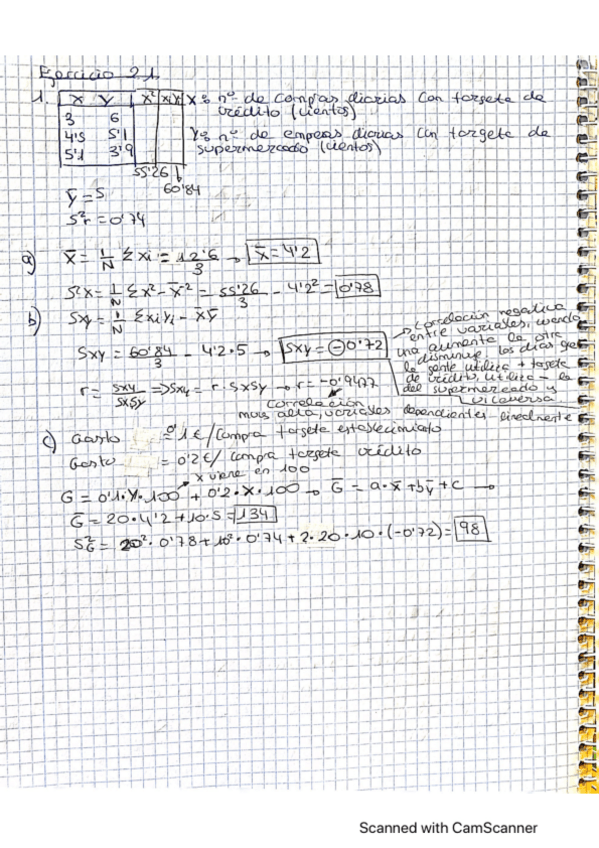 Ejercicio 2.1.
1. X Y X² XiYi X: nº de compras diarias con targeta de
crédito (cientos)
3 6
4'5 5'1 Y: nº de diarias con targeta de
supermercado (cientos)
5'1 3'9
55'26 60'84
ȳ = 5
S²r = 0'74
a) x̄ = 1/N Σxi = 12'6/3 → x̄ = 4'2
S²x = 1/N Σx² - x̄² = 55'26/3 - 4'2² = 0'78
b) Sxy = 1/N Σxiyi - x̄ȳ
Sxy = 60'84/3 - 4'2·5 → Sxy = -0'72
Correlación negativa
entre variables, cuando
una aumenta la otra
disminuye. Los días que
la gente utiliza + targeta
de crédito, utiliza - la
del supermercado y
viceversa.
r = sxy/sxsy => Sxy = r·sxsy → r = -0'9477
Correlación
muy alta, variables dependientes linealmente
c) Gasto = 0'1€/compra targeta establecimiento
Gasto = 0'2€/compra targeta crédito
x viene en 100
G = 0'1·Y·100 + 0'2·X·100 → Ḡ = a·x̄ + bȳ + c →
Ḡ = 20·4'2 + 10·5 = 134
S²G = 20²·0'78 + 10²·0'74 + 2·20·10·(-0'72) = 98
Scanned with CamScanner